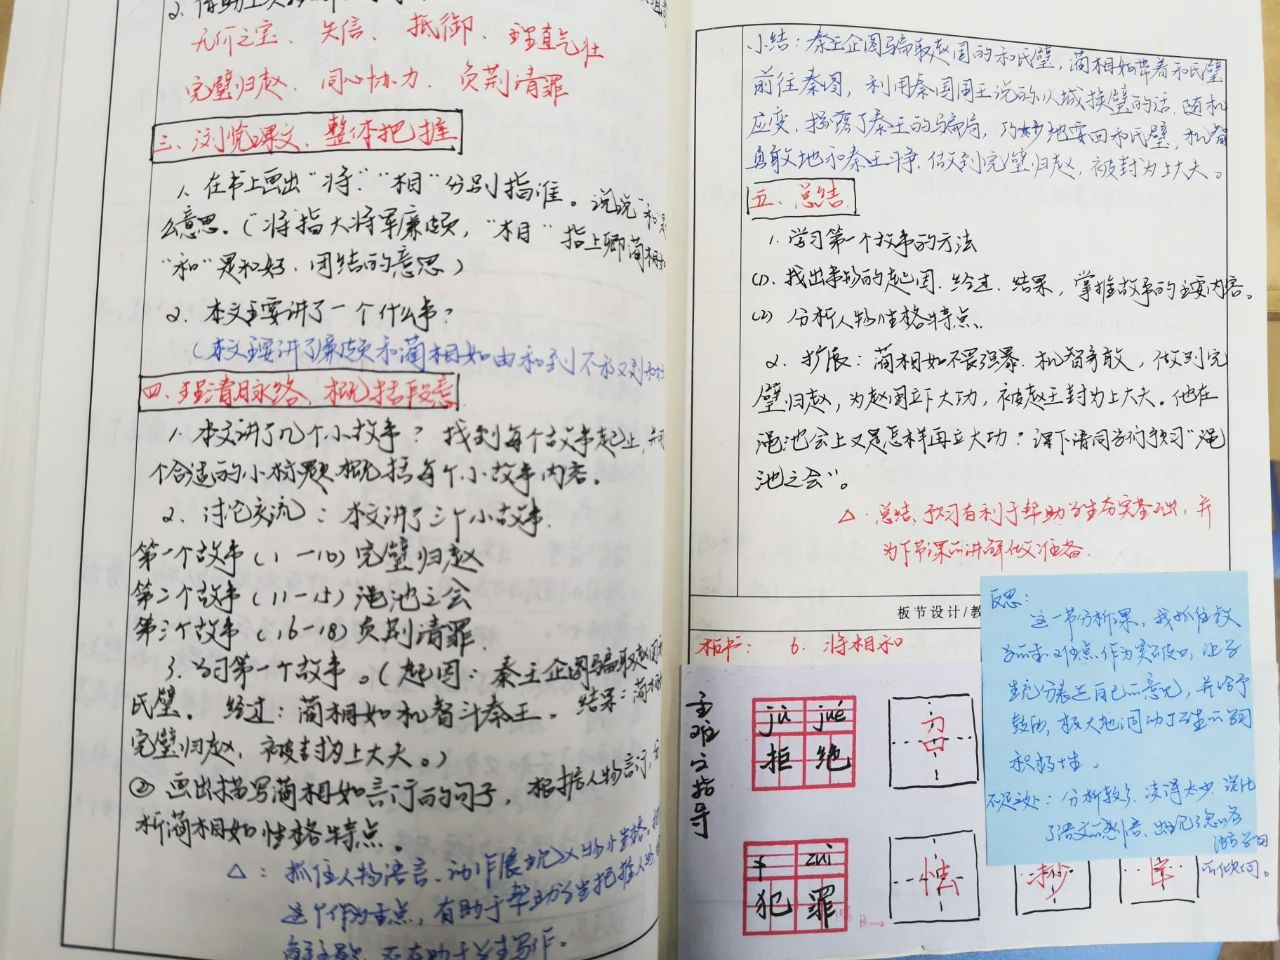 2. 借助工具
无价之宝、失信、抵御、理直气壮
完璧归赵、同心协力、负荆请罪
三、浏览课文、整体把握
1. 在书上画出“将”“相”分别指谁。说说“和”是
么意思。(“将”指大将军廉颇，“相”指上卿蔺相如
“和”是和好、团结的意思)
2. 本文主要讲了一个什么事？
(本文主要讲了廉颇和蔺相如由和到不和又到和
四、理清脉络、概括段意
1. 本文讲了几个小故事？找到每个故事起止，并
个合适的小标题概括每个小故事内容。
2. 讨论交流：本文讲了三个小故事.
第一个故事(1—10)完璧归赵
第二个故事(11—15)渑池之会
第三个故事(16—18)负荆请罪.
3. 学习第一个故事。(起因：秦王企图骗取赵国
氏璧. 经过：蔺相如机智斗秦王. 结果：蔺相如
完璧归赵、被封为上大夫。)
② 画出描写蔺相如言行的句子，根据人物言行，分
析蔺相如性格特点。
△：抓住人物语言、动作展现人物性格。把
这个作为重点，有助于帮助学生把握人物
小结：秦王企图骗取赵国的和氏璧，蔺相如带着和氏璧
前往秦国，利用秦国国王说的以城换璧的话，随机
应变，揭露了秦王的骗局，巧妙地要回和氏璧，机智
勇敢地和秦王斗争，做到完璧归赵，被封为上大夫。
五、总结
1. 学习第一个故事的方法
(1). 找出事物的起因、经过、结果，掌握故事的主要内容。
(2) 分析人物性格特点.
2. 扩展：蔺相如不畏强暴、机智勇敢，做到完
璧归赵，为赵国立下大功，被赵王封为上大夫。他在
渑池会上又是怎样再立大功？课下请同学们预习“渑
池之会”。
△. 总结、预习有利于帮助学生夯实基础，并
为下节课的讲解做准备.
板节设计/教
板书： 6. 将相和
重难字指导
jù jué
拒 绝
zuì
犯 罪
怯
反思：
这一节分析课，我抓住故
事的重难点作为突破口，让学
生充分表达自己的意见，并给予
鼓励，极大地调动了学生的学习
积极性。
不足之处：分析较多，读得太少，淡化
了语文的